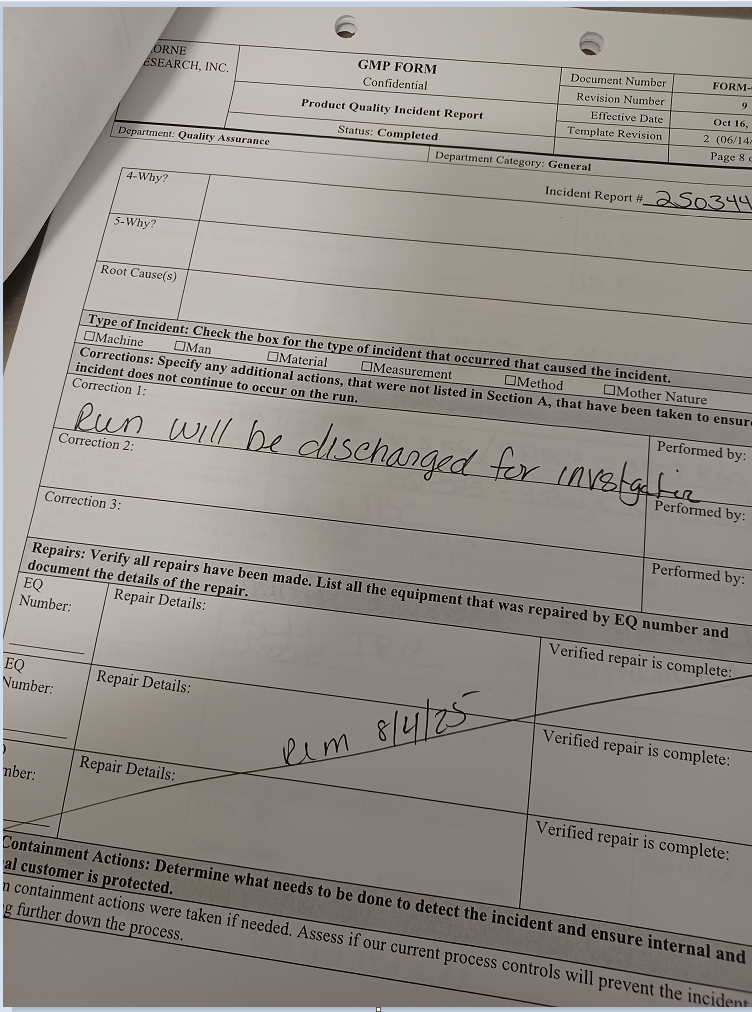 ORNE
ESEARCH, INC.
GMP FORM
Confidential
Product Quality Incident Report
Status: Completed
Document Number
FORM-
Revision Number
9
Effective Date
Oct 16,
Template Revision
2 (06/14/
Page 8
Department: Quality Assurance
Department Category: General
Incident Report # 250344
4-Why?
5-Why?
Root Cause(s)
Type of Incident: Check the box for the type of incident that occurred that caused the incident.
☐Machine ☐Man ☐Material ☐Measurement ☐Method ☐Mother Nature
Corrections: Specify any additional actions, that were not listed in Section A, that have been taken to ensure
incident does not continue to occur on the run.
Correction 1:
Performed by:
Run will be discharged for
Correction 2:
Performed by:
Correction 3:
Performed by:
Repairs: Verify all repairs have been made. List all the equipment that was repaired by EQ number and
document the details of the repair.
EQ
Number:
Repair Details:
Verified repair is complete:
EQ
Number:
Repair Details:
Verified repair is complete:
8/4/25
mber:
Repair Details:
Verified repair is complete:
Containment Actions: Determine what needs to be done to detect the incident and ensure internal and
al customer is protected.
n containment actions were taken if needed. Assess if our current process controls will prevent the incident
g further down the process.